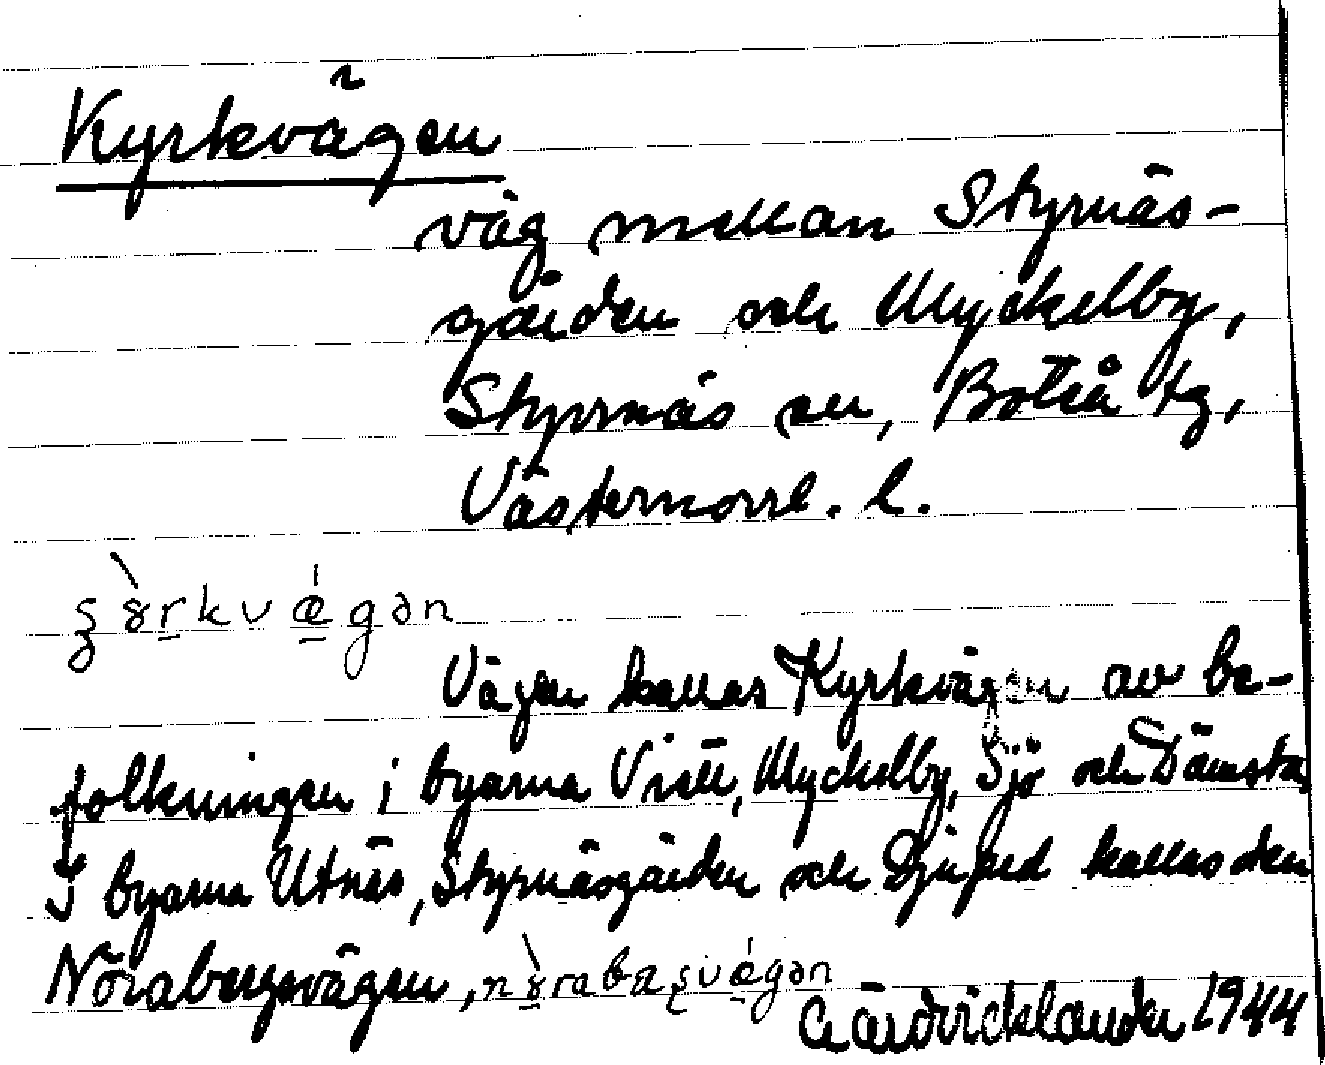 Kyrkvägen
väg mellan Styrnäs-
gården och Myckelby,
Styrnäs sn, Boteå tg,
Västernorrl. l.
kvǽgən
Vägen kallas Kyrkvägen av be-
folkningen i byarna Viätt, Myckelby, Sjö och Dämsta
I byarna Utnäs, Styrnäsgården och Djuped kallas den
Norabergsvägen,
1944